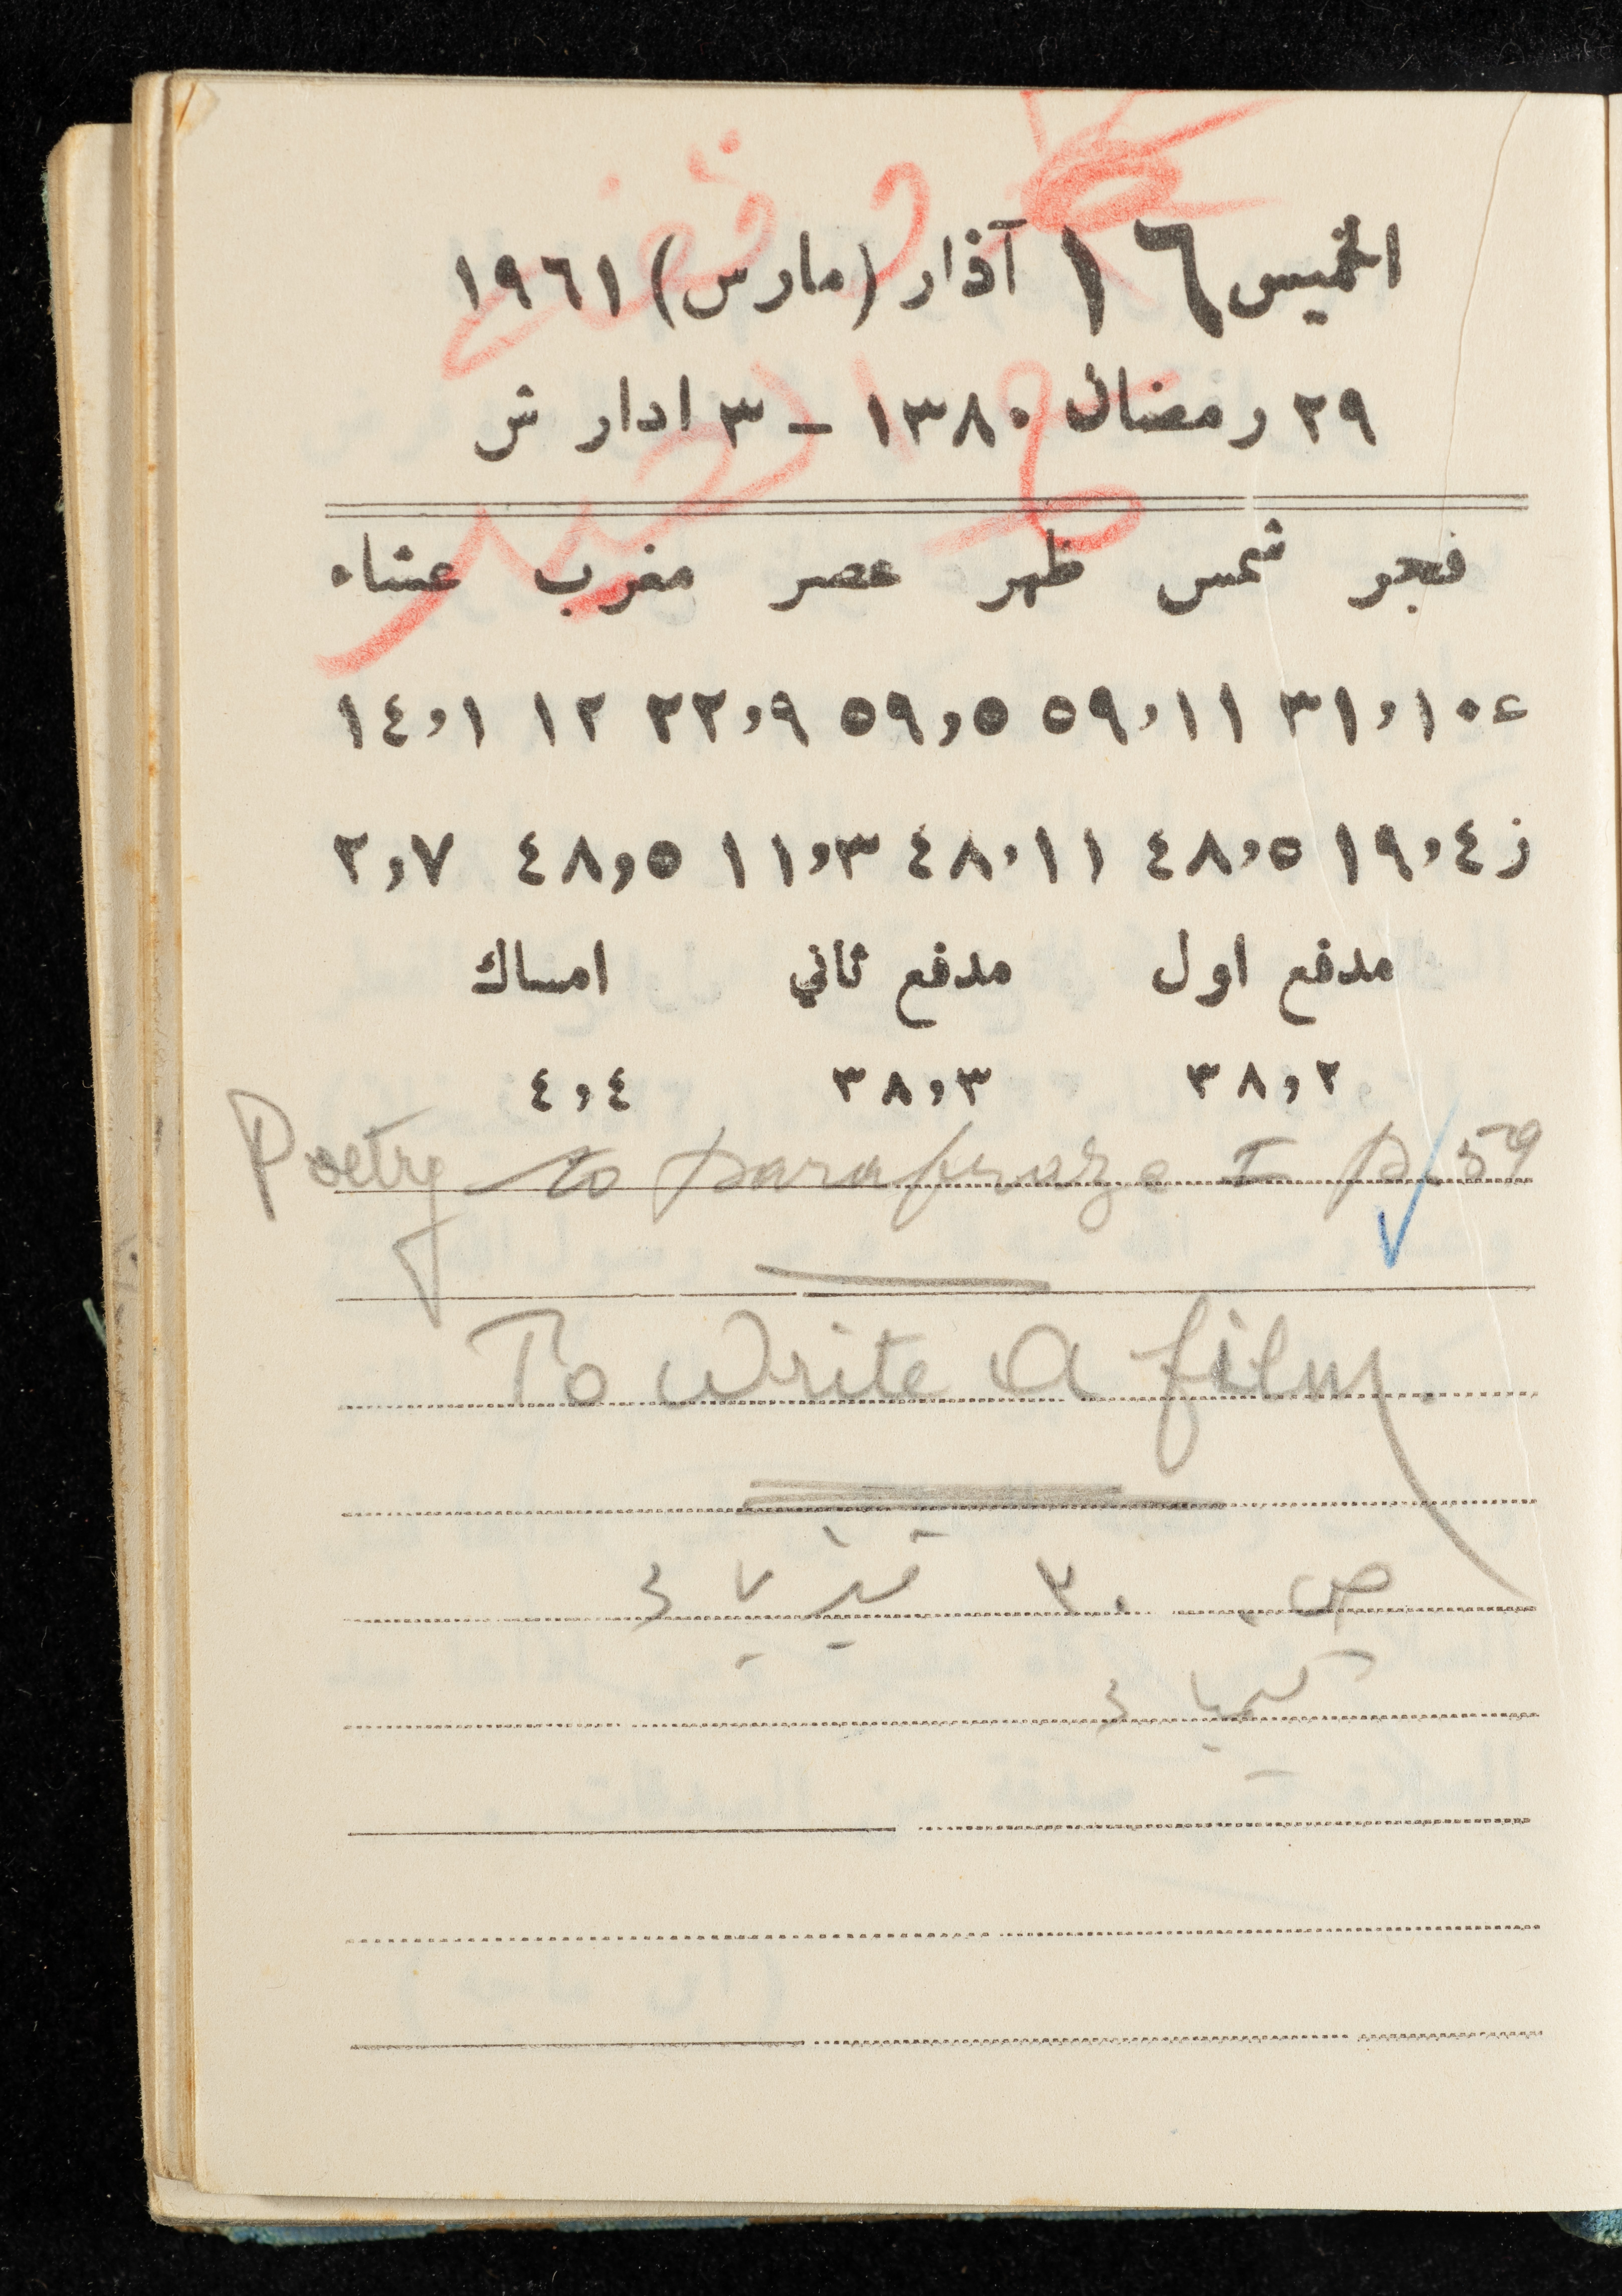 الخميس ١٦ آذار (مارس) ١٩٦١
٢٩ رمضان ١٣٨٠ ـ ٣ ادار ش
فجر شمس ظهر عصر مغرب عشاء
ع ١٠،٣١ ١١،٥٩ ٥،٥٩ ٩،٢٢ ١٢ ١،١٤
ز ٤،١٩ ٥،٤٨ ١١،٤٨ ٣،١١ ٥،٤٨ ٧،٢
مدفع اول مدفع ثاني امساك
٢،٣٨ ٣،٣٨ ٤،٤
Poetry to parafraze I p 59
To write a film.
ص. ٣٠ فيزيا
كيميا